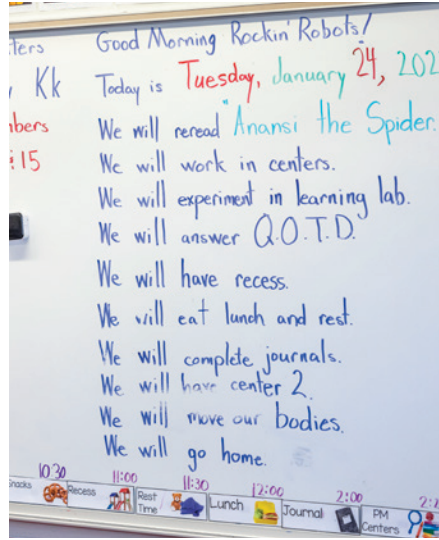 ters
Kk
bers
15
Good Morning Rockin' Robots!
Today is Tuesday, January 24, 202
We will reread "Anansi the Spider.
We will work in centers.
We will experiment in learning lab.
We will answer Q.O.T.D.
We will have recess.
We will eat lunch and rest.
We will complete journals.
We will have center 2.
We will move our bodies.
We will go home.
10:30 11:00 11:30 12:00 2:00 2:2
Snacks Recess Rest Time Lunch Journal PM Centers